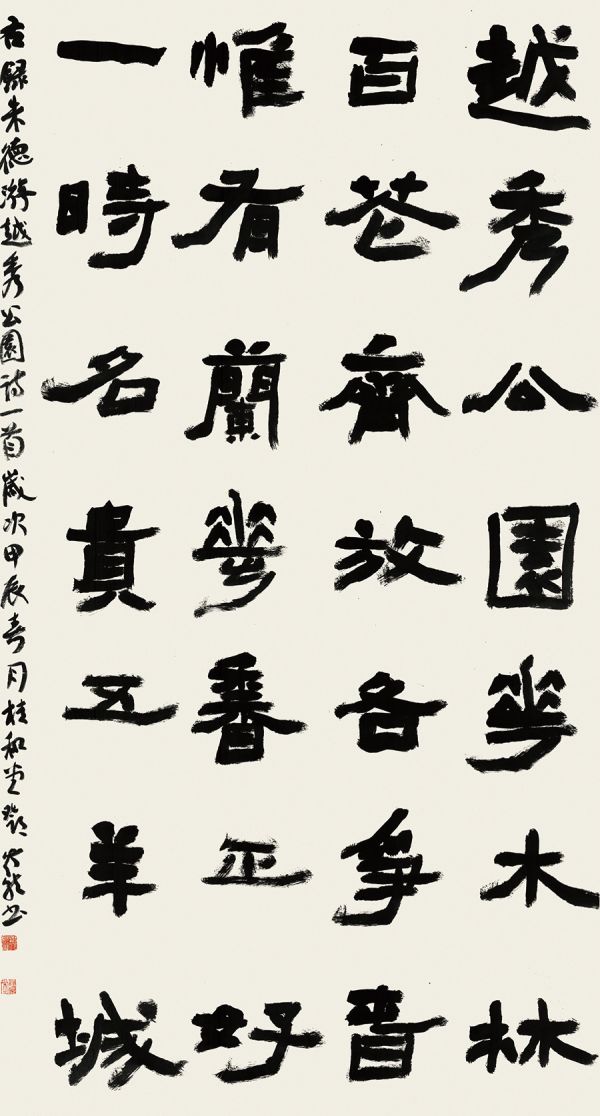 越秀公園華木林
百花齊放各爭旾
惟有蘭華香正好
一時名貴五羊城
右録朱德游越秀公園詩一首歲次甲辰春月桂和堂鄧書